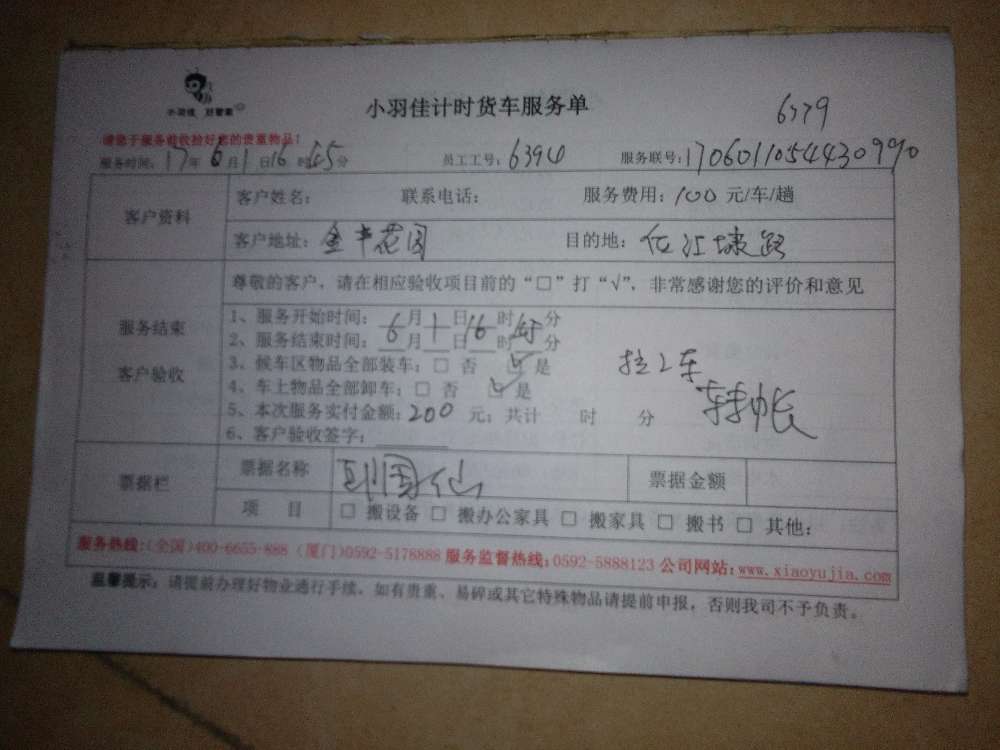 小羽佳 好管家
小羽佳计时货车服务单
6379
请您于服务前收拾好您的贵重物品！
服务时间：17年6月1日16时45分 员工工号：6394 服务联号：17060110544430990
客户资料
客户姓名： 联系电话： 服务费用：100元/车/趟
客户地址：金丰花园 目的地： 路
服务结束
客户验收
尊敬的客户，请在相应验收项目前的“□”打“√”，非常感谢您的评价和意见
1、服务开始时间：6月1日16时45分
2、服务结束时间：__月__日__时__分
3、候车区物品全部装车：□ 否 ☑ 是
4、车上物品全部卸车：□ 否 ☑ 是
拉2车
转帐
5、本次服务实付金额：200 元；共计 时 分
6、客户验收签字：
票据栏
票据名称 国仙 票据金额
项 目 □ 搬设备 □ 搬办公家具 □ 搬家具 □ 搬书 □ 其他：
服务热线：(全国)400-6655-888 (厦门)0592-5178888 服务监督热线：0592-5888123 公司网站：www.xiaoyujia.com
温馨提示：请提前办理好物业通行手续，如有贵重、易碎或其它特殊物品请提前申报，否则我司不予负责。